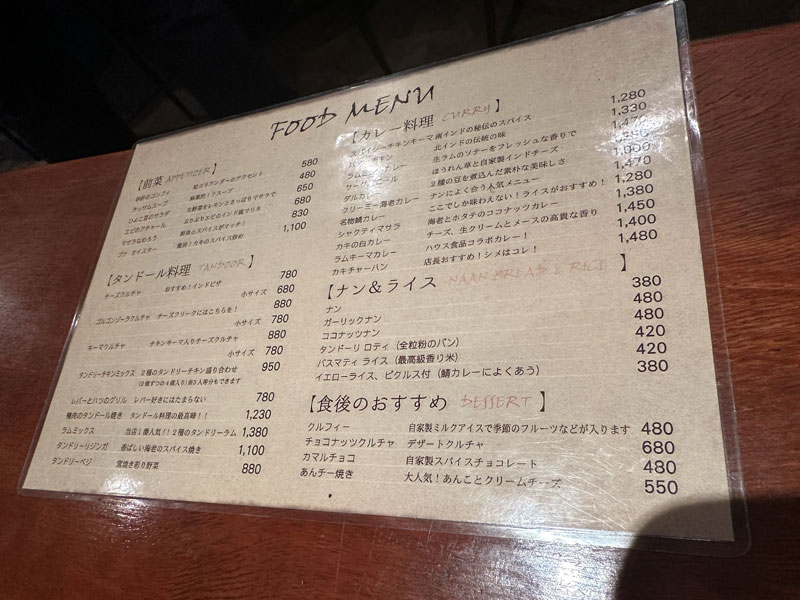 FOOD MENU
【前菜 APPETIZER】
砂肝のコンフィ 粒コリアンダーのアクセント 580
ラッサムスープ 480
ひよこ豆のサラダ 生野菜をレモンとさっぱりマサラで 650
エビのアチャール ぷりぷりエビのインド風マリネ 680
マサラなめろう 鮮魚とスパイスがマッチ! 830
カキ オイスター 1,100
【タンドール料理 TANDOOR】
チーズクルチャ おすすめ!インドピザ 780
小サイズ 680
ゴルゴンゾーラクルチャ チーズフリークにはこちらを! 880
小サイズ 780
キーマクルチャ チキンキーマ入りチーズクルチャ 880
小サイズ 780
タンドリーチキンミックス 2種のタンドリーチキン盛り合わせ 950
(2個ずつの4個入り)約3人等分もできます
レバーとハツのグリル レバー好きにはたまらない 780
鴨肉のタンドール焼き タンドール料理の最高峰!! 1,230
ラムミックス 当店1番人気!!2種のタンドリーラム 1,380
タンドリーリジンガ 香ばしい海老のスパイス焼き 1,100
タンドリーベジ 窯焼き彩り野菜 880
【カレー料理 CURRY】
スパイシーチキンキーマ 南インドの秘伝のスパイス 1,280
北インドの伝統の味 1,330
生ラムのソテーをフレッシュな香りで
ほうれん草と自家製インドチーズ
ダルカレー 2種の豆を煮込んだ素朴な美味しさ
クリーミー海老カレー ナンによく合う人気メニュー 1,470
名物鯖カレー ここでしか味わえない!ライスがおすすめ! 1,280
シャクティマサラ 海老とホタテのココナッツカレー 1,380
カキの白カレー チーズ、生クリームとメースの高貴な香り 1,450
ラムキーマカレー ハウス食品コラボカレー! 1,400
カキチャーハン 店長おすすめ!シメはコレ! 1,480
【ナン&ライス NAAN BREAD & RICE】
ナン 380
ガーリックナン 480
ココナッツナン 480
タンドーリ ロティ (全粒粉のパン) 420
バスマティ ライス (最高級香り米) 420
イエローライス、ピクルス付 (鯖カレーによくあう) 380
【食後のおすすめ DESSERT】
クルフィー 自家製ミルクアイスで季節のフルーツなどが入ります 480
チョコナッツクルチャ デザートクルチャ 680
カマルチョコ 自家製スパイスチョコレート 480
あんチー焼き 大人気!あんことクリームチーズ 550